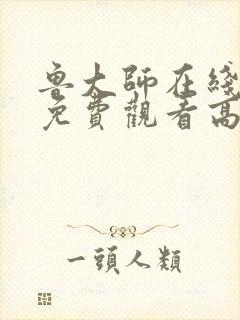 魯大師在綫
免費觀看高
一頭人類